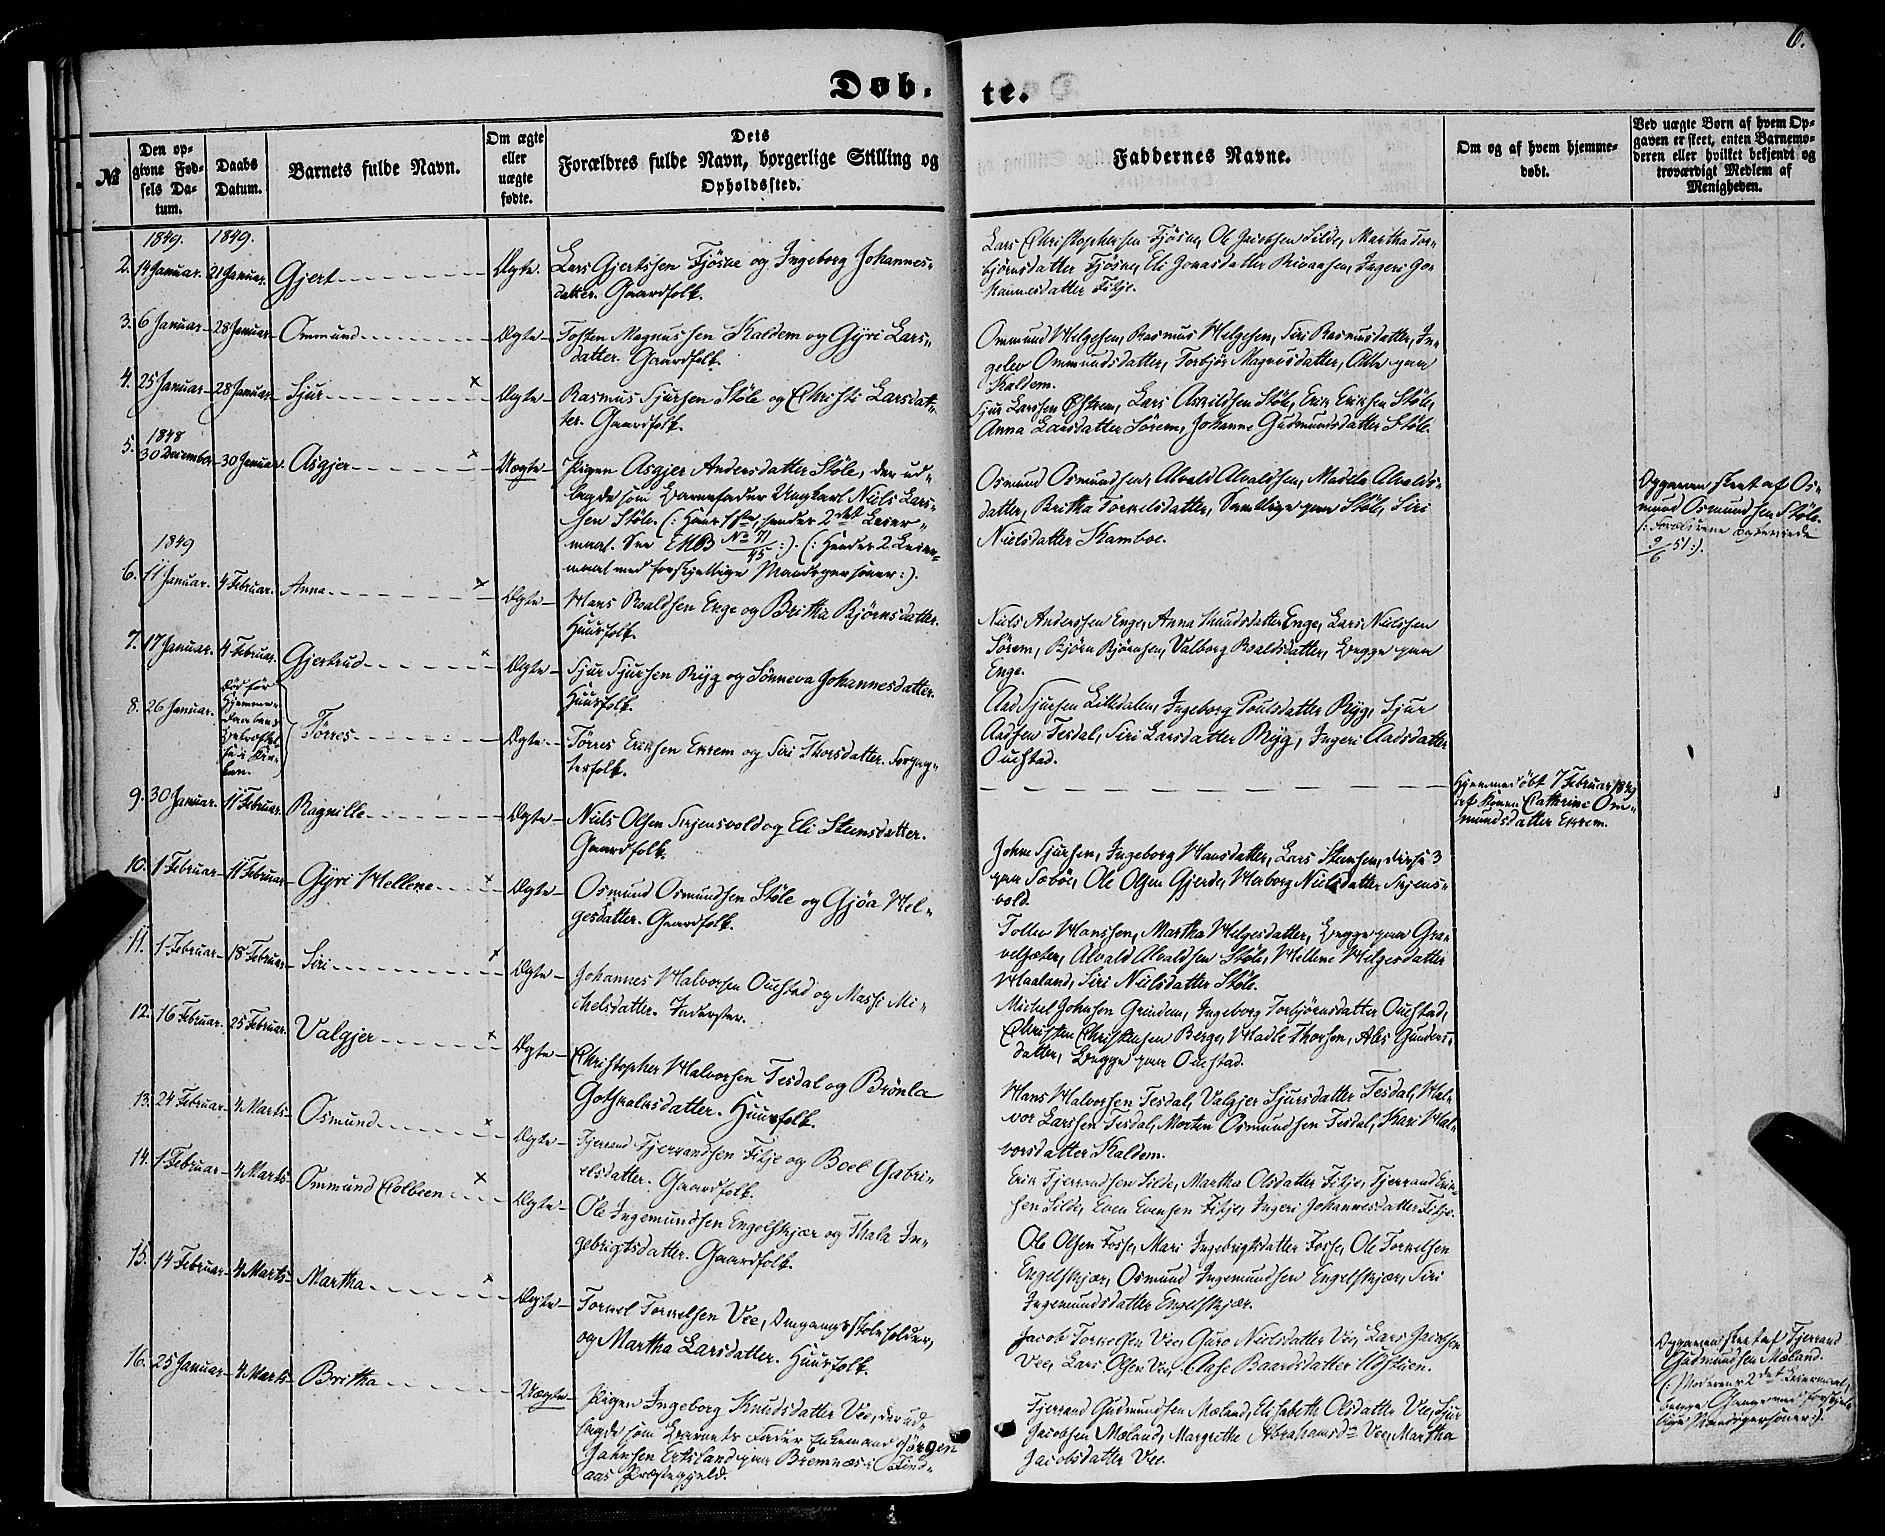 6.
Døb. te.
№
Den op-
givne Fød-
sels Da-
tum.
Daabs
Datum.
Barnets fulde Navn.
Om ægte
eller
uægte
fødte.
Dets
Forældres fulde Navn, borgerlige Stilling og
Opholdssted.
Faddernes Navne.
Om og af hvem hjemme-
døbt.
Ved uægte Børn af hvem Op-
gaven er skeet, enten Barnemo-
deren eller hvilket bekjendt og
troværdigt Medlem af
Menigheden.
1849. 1849.
2. 14 Januar. 21 Januar. Gjert Ægte. Lars Gjertsen Fjösne og Ingeborg Johannes-
datter. Gaardfolk.
Lars Christophersen Fjösne, Ole Jacobsen Silde, Martha Tor-
björnsdatter Fjösne, Eli Jonasdatter, Ingeri Jo-
hannesdatter Fikje.
3. 6 Januar 28 Januar Ommund Ægte Tosten Magnussen Kaldem og Gyri Lars-
datter. Gaardfolk.
Ommund Helgesen, Rasmus Helgesen, Siri Rasmusdatter, In-
gelev Ommundsdatter, Torbjör Magnusdatter, Alle paa
Kaldem.
4. 25 Januar 28 Januar Sjur x Ægte Rasmus Sjursen Støle og Christi Larsdat-
ter. Gaardfolk.
Sjur Larssen, Lars Askildsen Støle, Erik Eriksen Støle,
Anna Larsdatter Sørem, Johanne Gudmundsdatter Støle.
1848
5. 30 December 30 Januar. Asgjer x Uægte Pigen Asgjer Andersdatter Støle, der ud-
lagde som Barnefader Ungkarl Niels Lars-
sen Støle. (: Hans 1ste, hendes 2det Leier-
maal. See MB No 71/45 :). (: Hendes 2 Leier-
maal med forskjellige Mandspersoner :).
Osmund Osmundsen, Alvald Alvaldsen, Madele Alvalds-
datter, Britha Torkelsdatter, Samtlige paa Støle, Siri
Nielsdatter Skamboe.
Opgaven skeet af Os-
mund Osmundsen Støle.
(: Forældrene copulerede
9/6 51 :).
1849
6. 11 Januar. 4 Februar. Anna x Ægte Hans Roaldsen Enge og Britha Bjørnsdatter.
Huusfolk.
Niels Anderssen Enge, Anna Knudsdatter Enge, Lars Nielssen
Sørem, Bjørn Bjørnsen, Valborg Roaldsdatter, begge paa
Enge.
7. 17 Januar. 4 Februar. Gjertrud x Ægte Sjur Sjursen Ryg og Sønneva Johannesdatter.
Huusfolk.
Aad Sjursen Lilledalen, Ingeborg Poulsdatter Ryg, Sjur
Aadsen Tesdal, Siri Larsdatter Ryg, Ingeri Aadsdatter
Ouestad.
8. 26 Januar. død før
Hjemme-
daabens
Bekræftel-
se i Kir-
ken. Tørres Ægte Tørres Eriksen Ekrem og Siri Thorsdatter. Forpag-
terfolk.
Hjemmedøbt 7 Februar 1849
af Konen Cathrine Om-
mundsdatter Ekrem.
9. 30 Januar. 11 Februar. Ragnille Ægte Niels Olsen Skjensvold og Eli Steensdatter.
Gaardfolk.
Johne Sjursen, Ingeborg Hansdatter, Lars Steensen, disse 3
paa Sæbøe, Ole Olsen Gjerde, Herborg Nielsdatter Skjens-
vold.
10. 1 Februar 11 Februar Gyri Hellene x Ægte Osmund Osmundsen Støle og Gjøa Hel-
gesdatter. Gaardfolk.
Tollev Hanssen, Martha Helgesdatter, begge paa Gra-
velsæter, Alvald Alvaldsen Støle, Hellene Helgesdatter
Haaland, Siri Nielsdatter Støle.
11. 1 Februar 18 Februar Siri x Ægte Johannes Halvorsen Ouestad og Massi Mi-
chelsdatter. Inderster.
Michel Johnsen Grindem, Ingeborg Torbjörnsdatter Ouestad,
Christen Christensen Berge, Madle Thorsen, Ales Gunders-
datter, begge paa Ouestad.
12. 16 Februar. 25 Februar. Valgjer x Ægte Christopher Halvorsen Tesdal og Brönla
Gothalksdatter. Huusfolk.
Hans Halvorsen Tesdal, Valgjer Sjursdatter Tesdal, Hal-
vor Larssen Tesdal, Morten Osmundsen Tesdal, Kari Hal-
vorsdatter Kaldem.
13. 24 Februar 4 Marts Osmund x Ægte Fjerrand Fjerrandsen Fikje og Boel Gabri-
elsdatter. Gaardfolk.
Erik Fjerrandsen Silde, Martha Olsdatter Fikje, Fjerrand Erik-
sen Silde, Even Evensen Fikje, Ingeri Johannesdatter Fikje.
14. 1 Februar 4 Marts Ommund Colbeen x Ægte Ole Ingemundsen Engelskjær og Thala In-
gebrigtsdatter. Gaardfolk.
Ole Olsen Fosse, Mari Ingebrigtsdatter Fosse, Ole Torkelsen
Engelskjær, Osmund Ingemundsen Engelskjær, Siri
Ingemundsdatter Engelskjær.
15. 14 Februar 4 Marts Martha x Ægte Torkel Torkelsen Vee, Omgangsskoleholder,
og Martha Larsdatter. Huusfolk.
Jacob Torkelsen Vee, Guro Nielsdatter Vee, Lars Jacobsen
Vee, Lars Olsen Vee, Aase Baardsdatter Udstien.
16. 25 Januar 4 Marts Britha Uægte Pigen Ingeborg Knudsdatter Vee, der ud-
lagde som Barnets Fader Enkemand Jörgen
Johnsen Erksland paa Bremnæs i Find-
aas Præstegjeld.
Fjerrand Gudmundsen Mæland, Elisabeth Olsdatter Vee, Sjur
Jacobsen Mæland, Margrethe Abrahamsdr Vee, Martha
Jacobsdatter Vee.
Opgaven skeet af Fjerrand
Gudmundsen Mæland.
(: Moderens 2det Leiermaal,
begge Gange med forskjel-
lige Mandspersoner :).